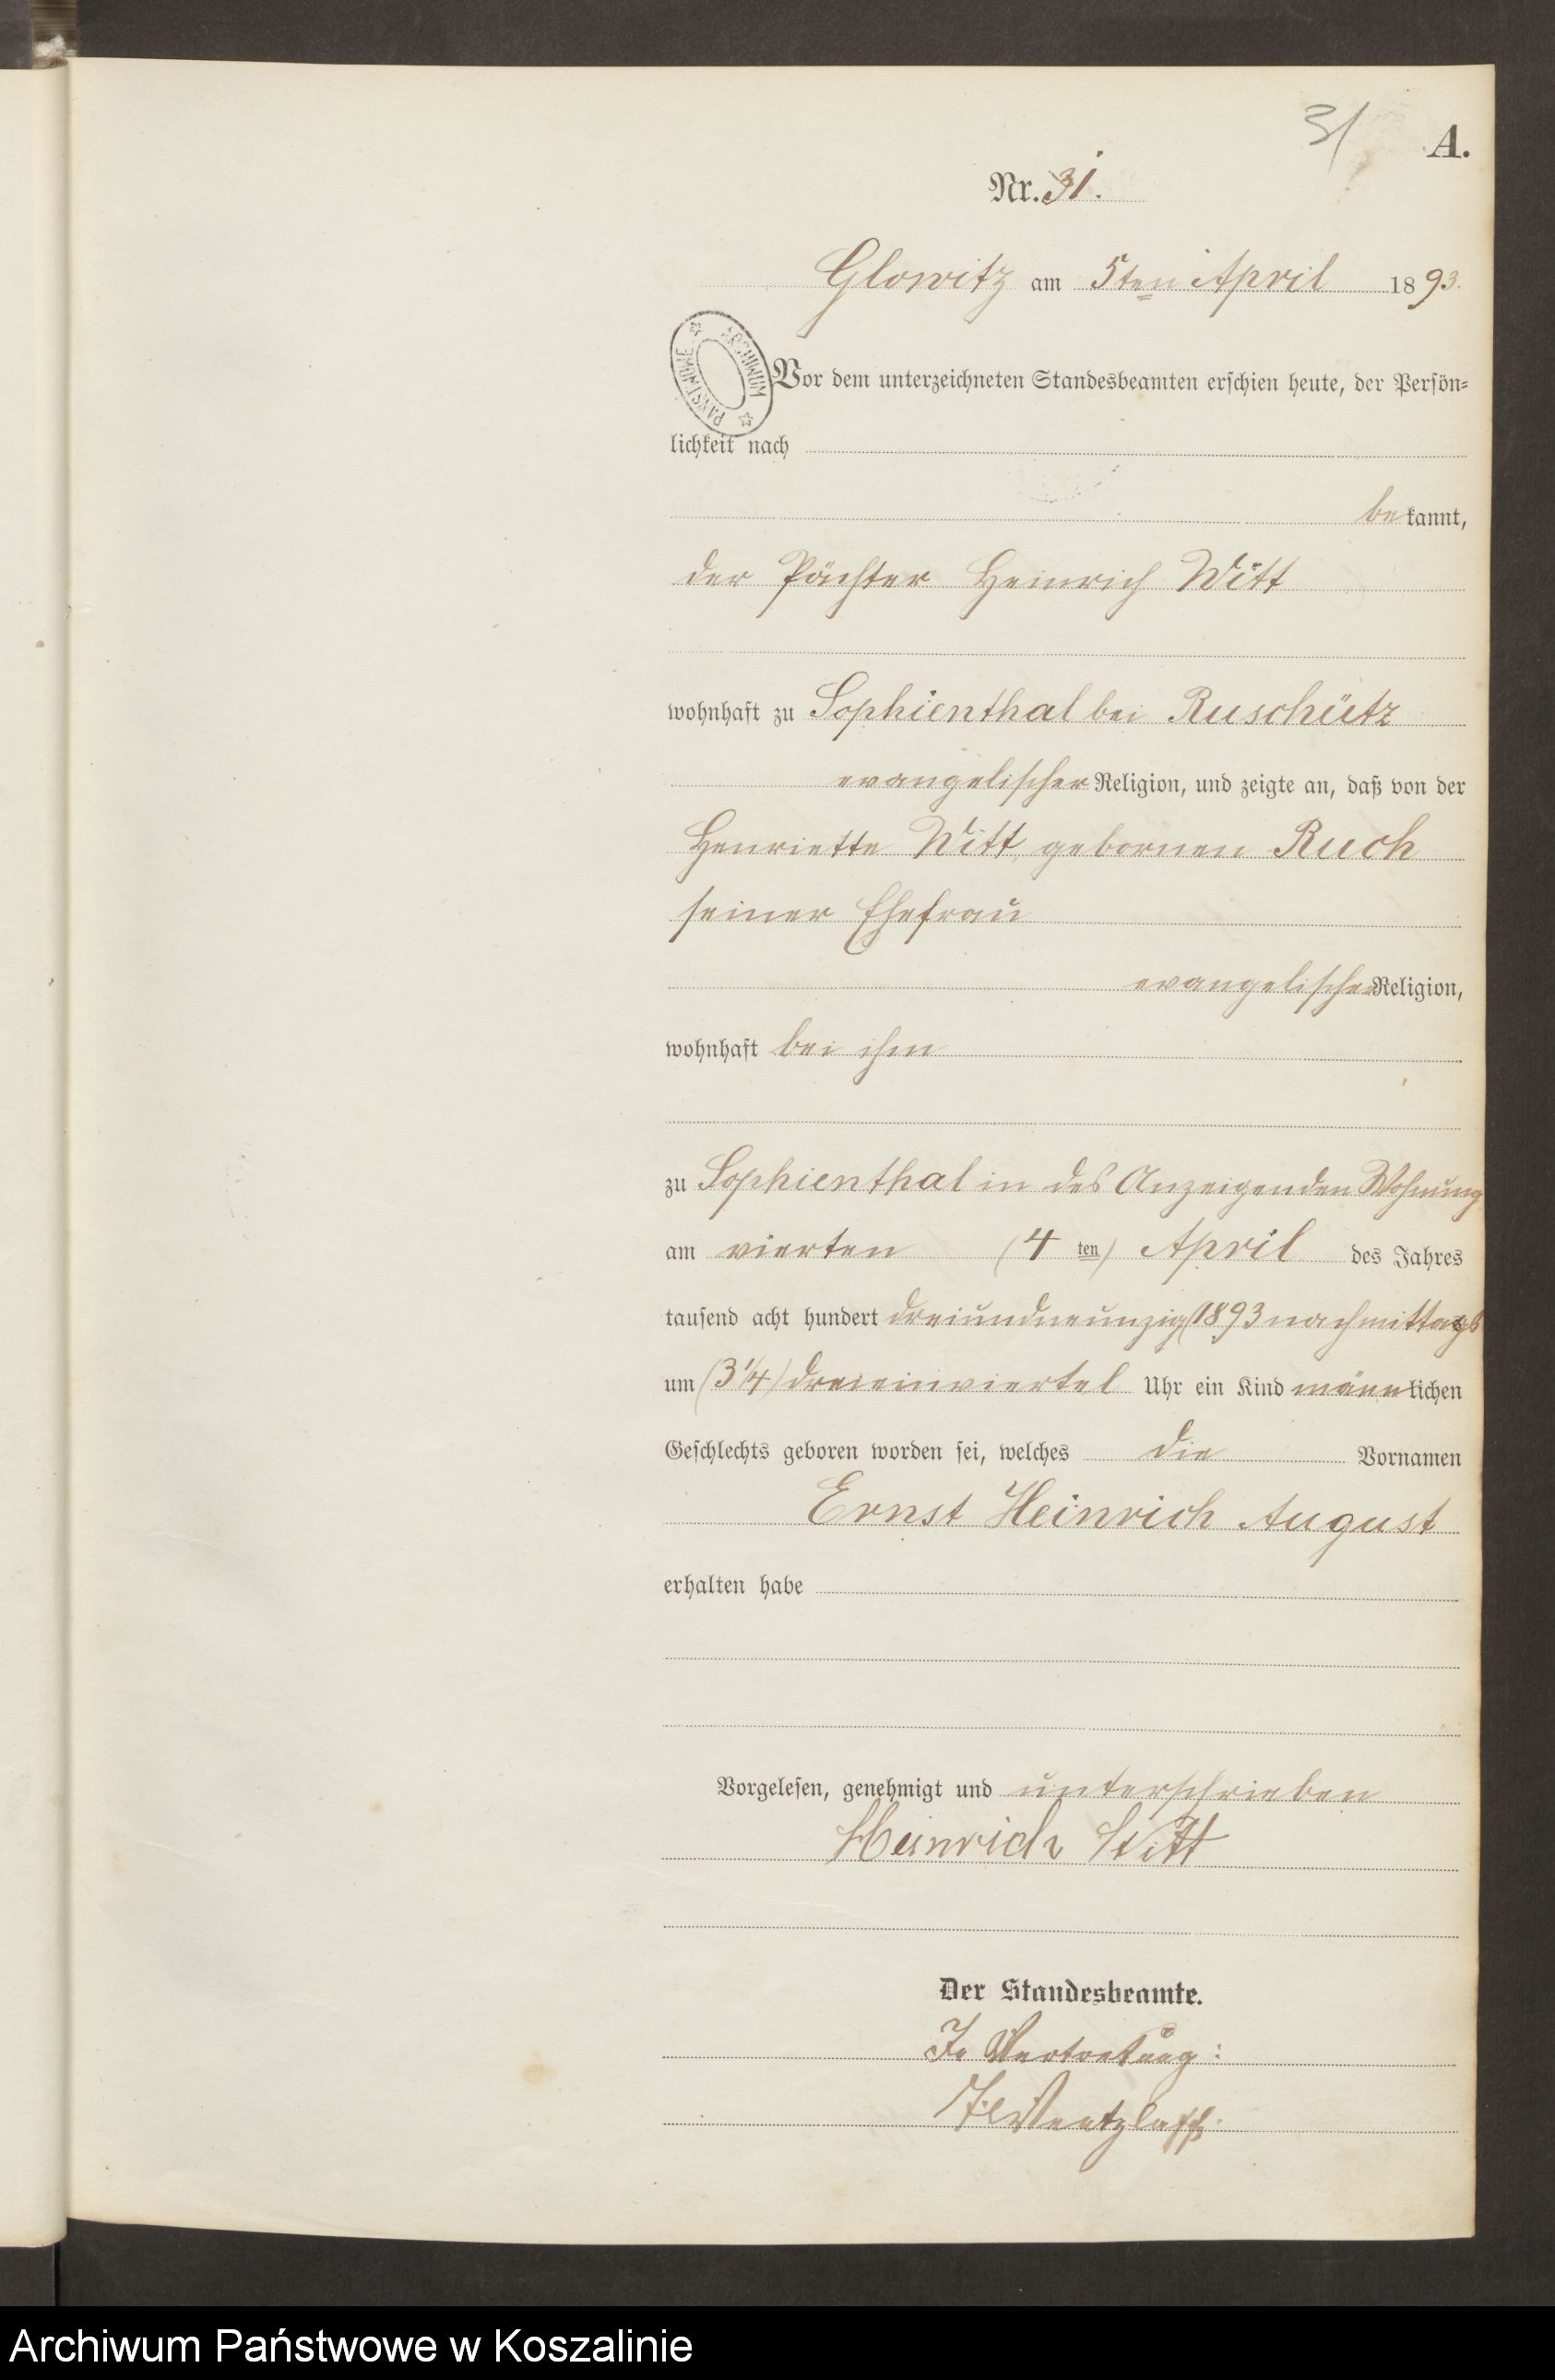 31
A.
Nr. 31.
Glowitz am 5ten April 1893.
ARCHIWUM PAŃSTWOWE
Vor dem unterzeichneten Standesbeamten erschien heute, der Persön=
lichkeit nach
bekannt,
der Pächter Heinrich Witt
wohnhaft zu Sophienthal bei Ruschütz
evangelischer Religion, und zeigte an, daß von der
Henriette Witt, gebornen Ruch
seiner Ehefrau
evangelischer Religion,
wohnhaft bei ihm
zu Sophienthal in des Anzeigenden Wohnung
am vierten (4 ten) April des Jahres
tausend acht hundert dreiundneunzig (1893 nachmittags
um (3 1/4) dreieinviertel Uhr ein Kind männlichen
Geschlechts geboren worden sei, welches die Vornamen
Ernst Heinrich August
erhalten habe
Vorgelesen, genehmigt und unterschrieben
Heinrich Witt
Der Standesbeamte.
In Vertretung:
Archiwum Państwowe w Koszalinie